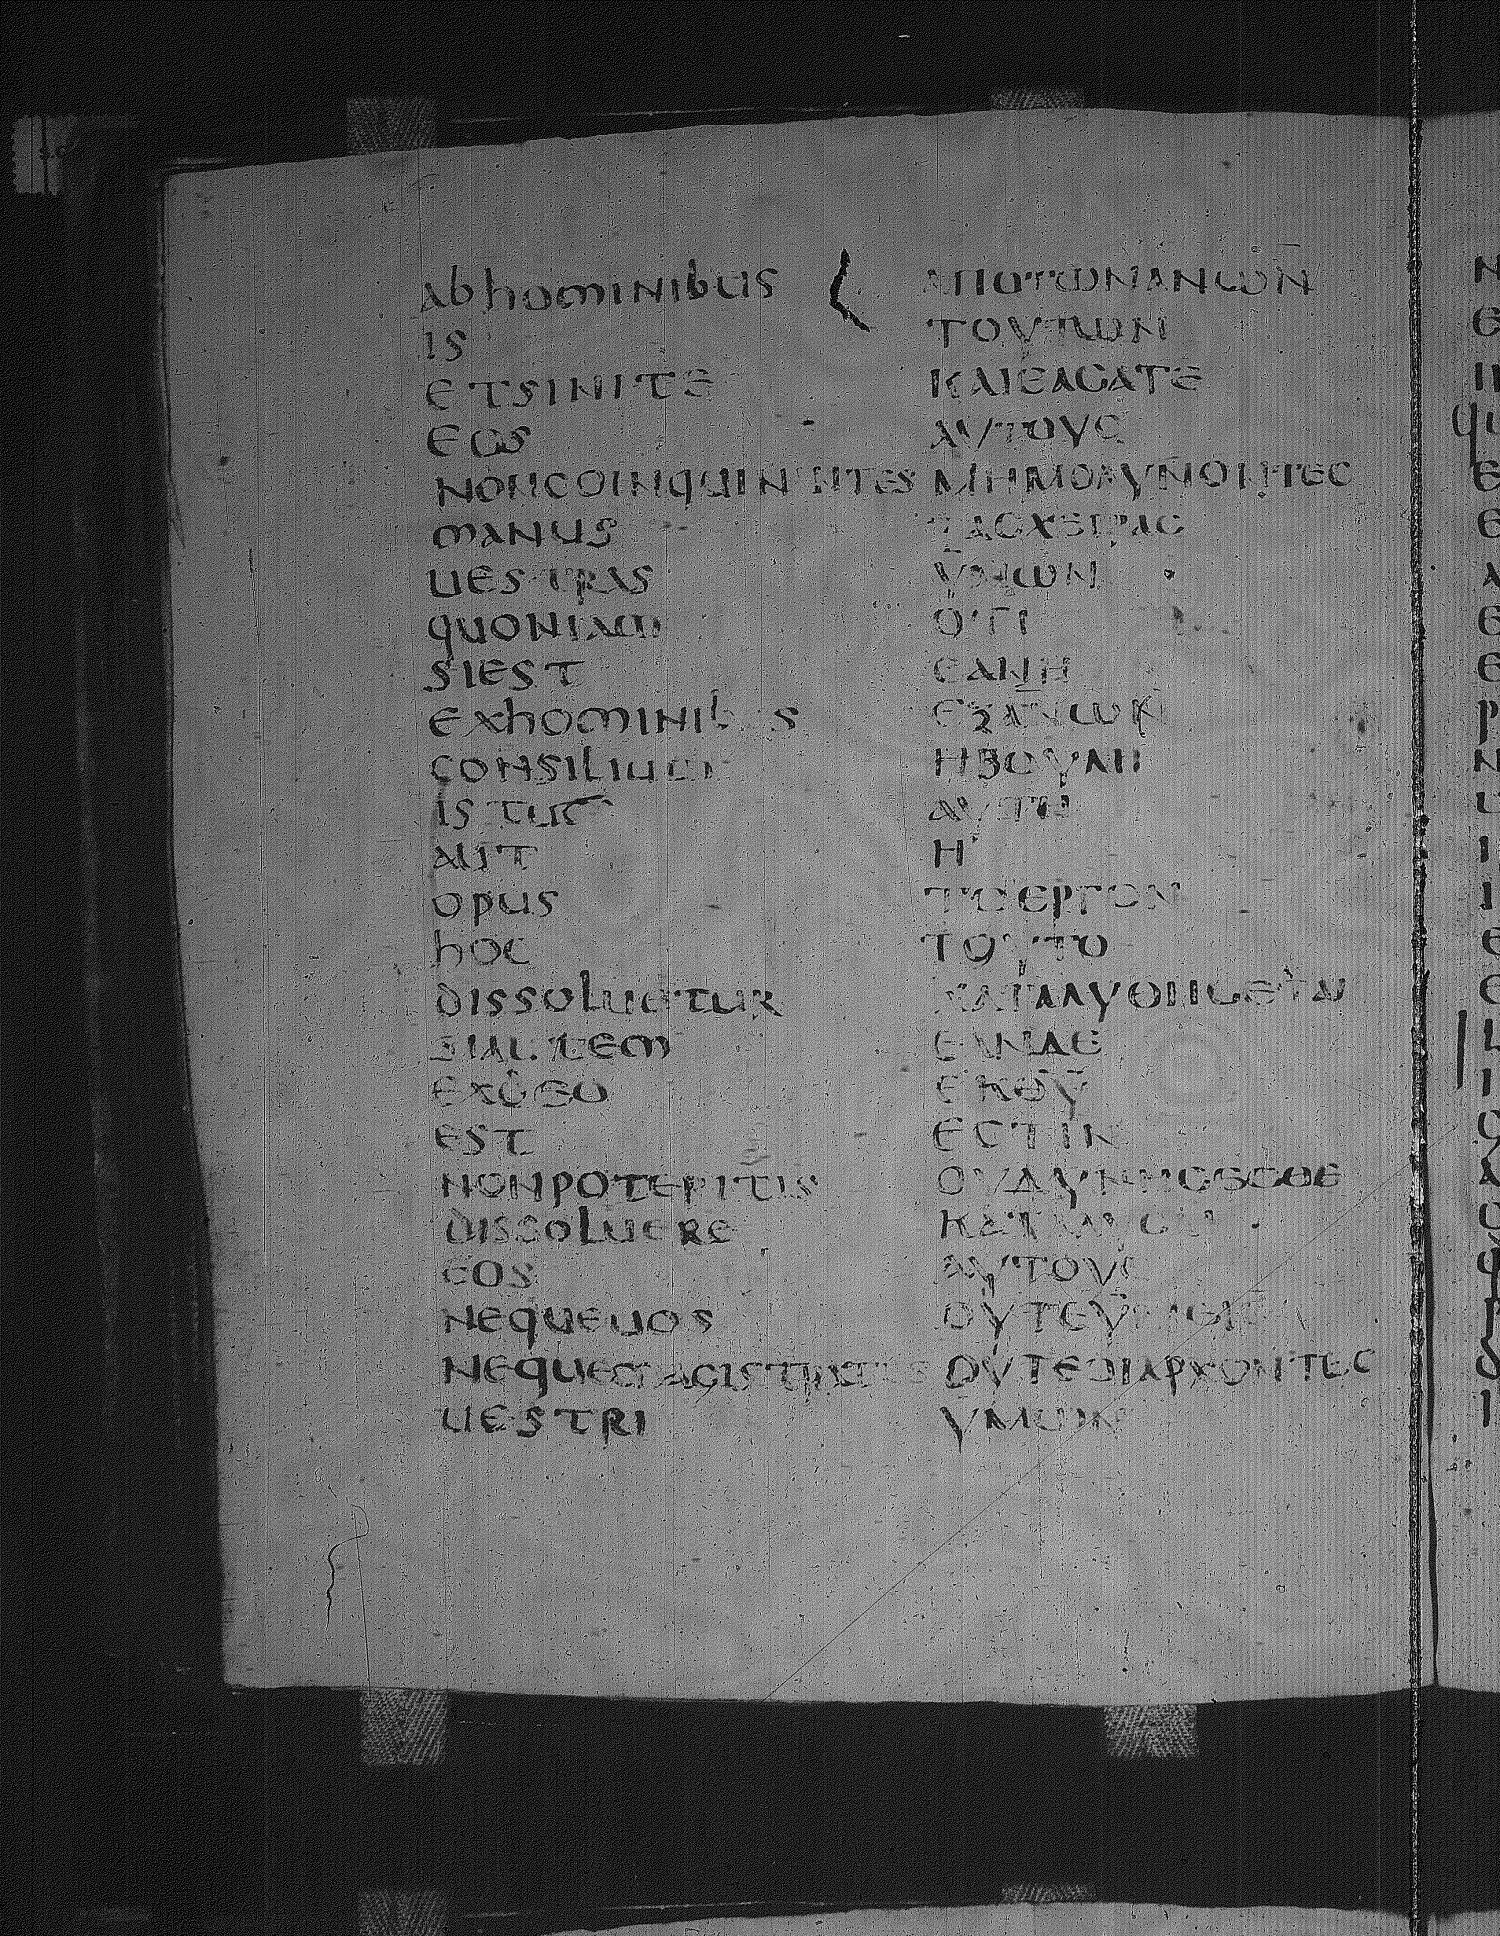 abhominibus ΑΠΟΤΩΝΑΝΩΝ
is ΤΟΥΤΩΝ
etsinite ΚΑΙΕΑϹΑΤΕ
eos ΑΥΤΟΥϹ
noncoinquinantes ΜΗΜΟΛΥΝΟΝΤΕϹ
manus ΤΑϹΧΕΙΡΑϹ
uestras ΥΜΩΝ
quoniam ΟΤΙ
siest ΕΑΝΗ
exhominibus ΕΞΑΝΩΝ
consilium ΗΒΟΥΛΗ
istut ΑΥΤΗ
aut Η
opus ΤΟΕΡΓΟΝ
hoc ΤΟΥΤΟ
dissoluetur ΚΑΤΑΛΥΘΗϹΕΤΑΙ
siautem ΕΑΝΔΕ
exdeo ΕΚΘΥ
est ΕϹΤΙΝ
nonpoteritis ΟΥΔΥΝΗϹΕϹΘΕ
dissoluere ΚΑΤΑΛΥϹΑΙ
eos ΑΥΤΟΥϹ
nequeuos ΟΥΤΕΥΜΕΙϹ
nequemagistratus ΟΥΤΕΟΙΑΡΧΟΝΤΕϹ
uestri ΥΜΩΝ